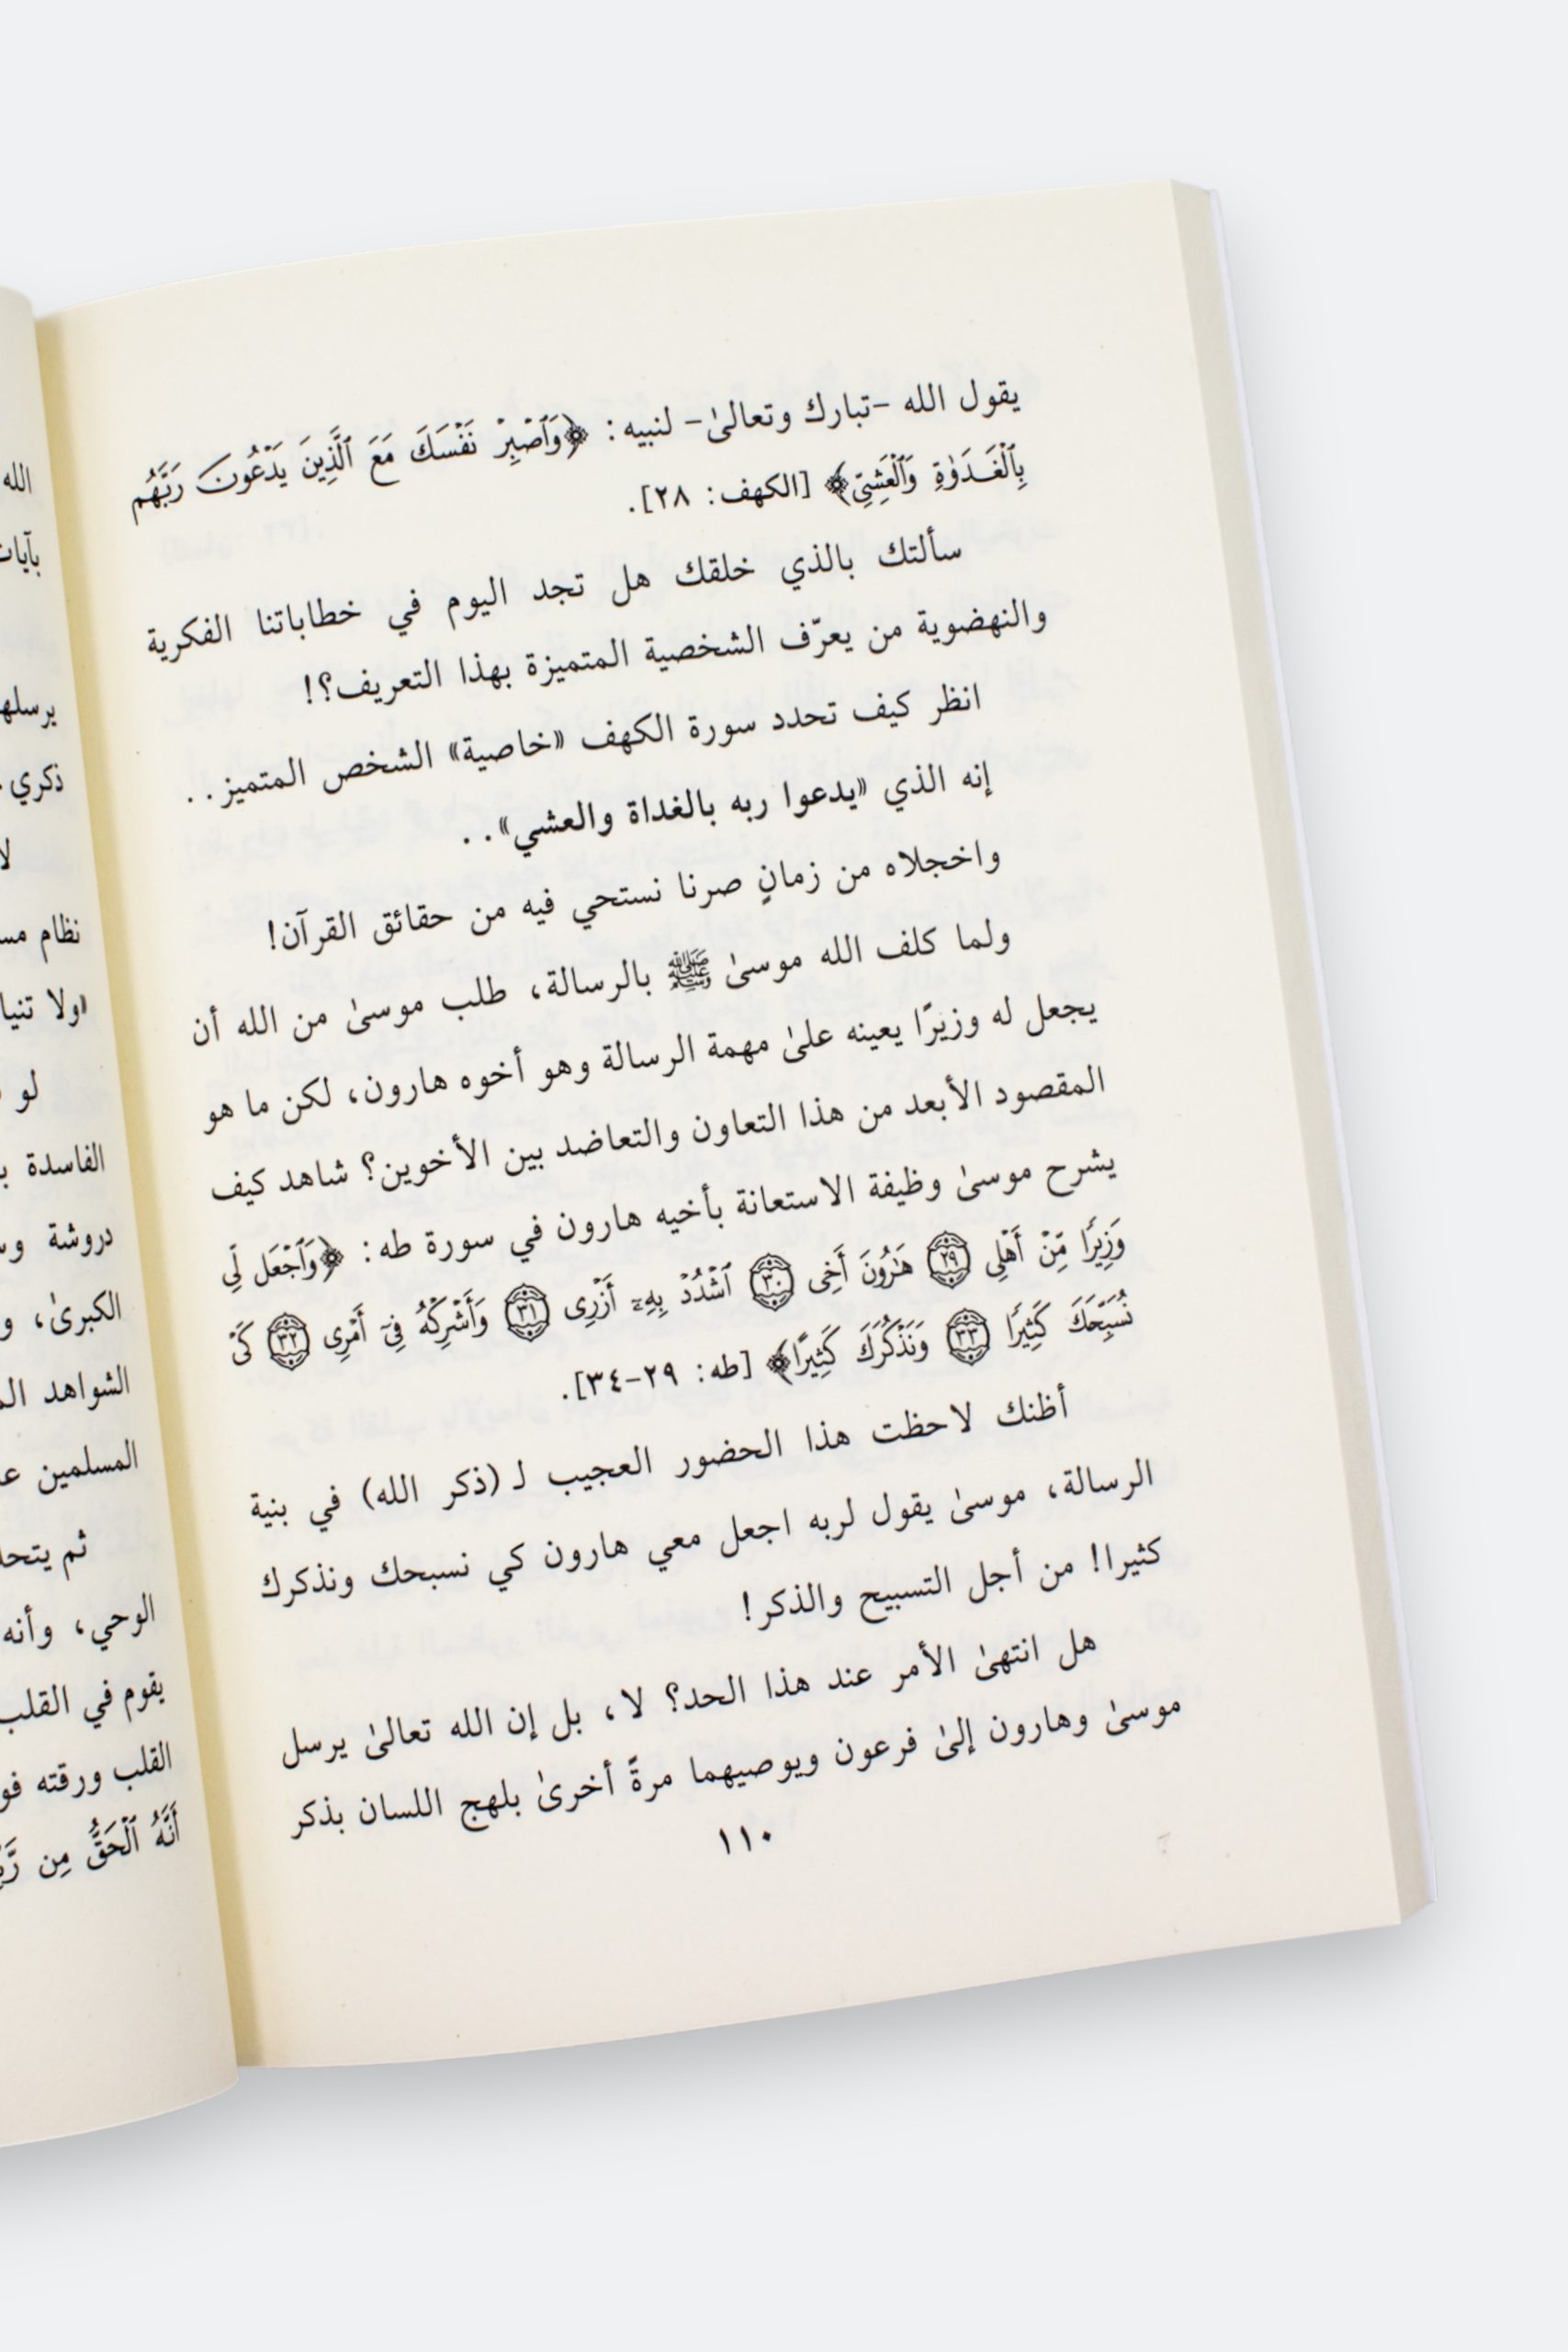 يقول الله -تبارك وتعالىٰ- لنبيه: ﴿وَٱصۡبِرۡ نَفۡسَكَ مَعَ ٱلَّذِينَ يَدۡعُونَ رَبَّهُم
بِٱلۡغَدَوٰةِ وَٱلۡعَشِيِّ﴾ [الكهف: ٢٨].
سألتك بالذي خلقك هل تجد اليوم في خطاباتنا الفكرية
والنهضوية من يعرّف الشخصية المتميزة بهذا التعريف؟!
انظر كيف تحدد سورة الكهف «خاصية» الشخص المتميز..
إنه الذي «يدعوا ربه بالغداة والعشي»..
واخجلاه من زمانٍ صرنا نستحي فيه من حقائق القرآن!
ولما كلف الله موسىٰ ﷺ بالرسالة، طلب موسىٰ من الله أن
يجعل له وزيرًا يعينه علىٰ مهمة الرسالة وهو أخوه هارون، لكن ما هو
المقصود الأبعد من هذا التعاون والتعاضد بين الأخوين؟ شاهد كيف
يشرح موسىٰ وظيفة الاستعانة بأخيه هارون في سورة طه: ﴿وَٱجۡعَل لِّي
وَزِيرٗا مِّنۡ أَهۡلِي ٢٩ هَٰرُونَ أَخِي ٣٠ ٱشۡدُدۡ بِهِۦٓ أَزۡرِي ٣١ وَأَشۡرِكۡهُ فِيٓ أَمۡرِي ٣٢ كَيۡ
نُسَبِّحَكَ كَثِيرٗا ٣٣ وَنَذۡكُرَكَ كَثِيرًا﴾ [طه: ٢٩-٣٤].
أظنك لاحظت هذا الحضور العجيب لـ (ذكر الله) في بنية
الرسالة، موسىٰ يقول لربه اجعل معي هارون كي نسبحك ونذكرك
كثيرا! من أجل التسبيح والذكر!
هل انتهىٰ الأمر عند هذا الحد؟ لا، بل إن الله تعالىٰ يرسل
موسىٰ وهارون إلىٰ فرعون ويوصيهما مرةً أخرىٰ بلهج اللسان بذكر
١١٠
الله
يرسلها
ذكري
نظام
«ولا تنيا
لو
الفاسدة
دروشة
الكبرىٰ، و
الشواهد
المسلمين
ثم
الوحي، وأنه
يقوم في القلب
القلب ورقته
أَنَّهُ ٱلۡحَقُّ مِن